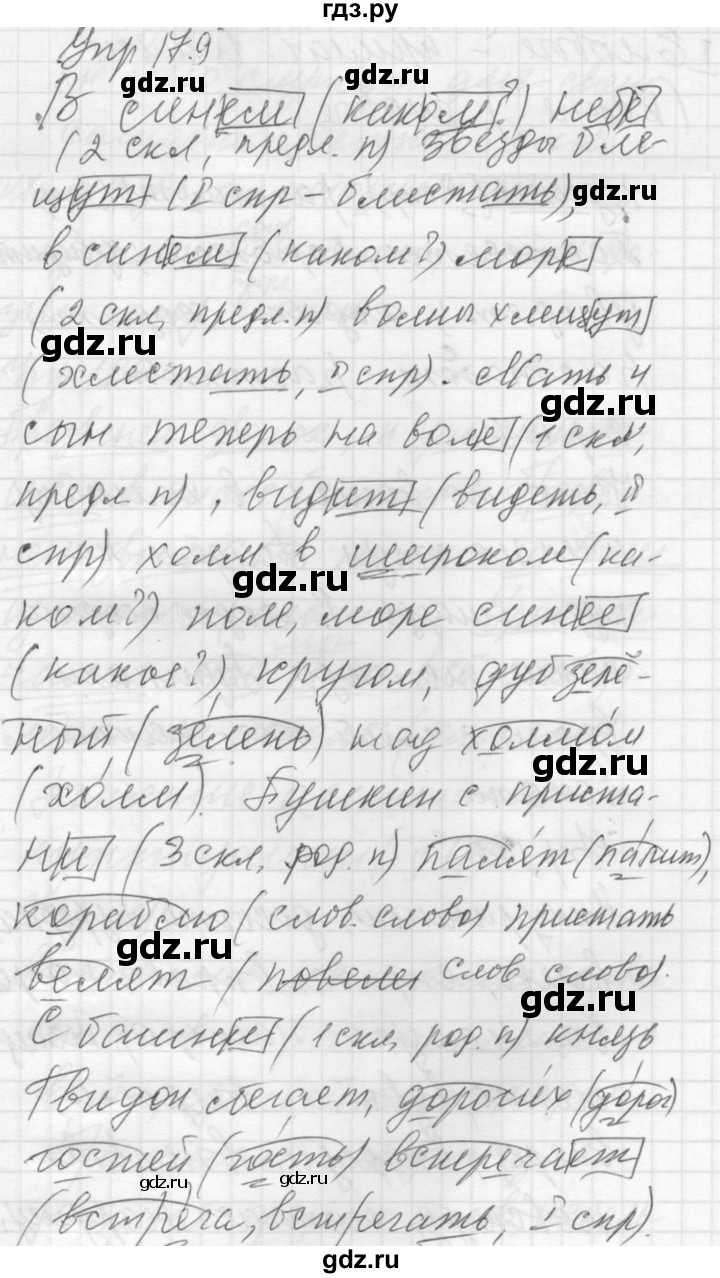 гдз.ру
Упр 179
gdz.ru gdz.ru
В синем (каком?) небе
(2 скл, предл. п) звезды бле-
щут (I спр - блистать), gdz.ru
в синем (каком?) море
(2 скл, предл. п) волны хлещут
gdz.ru
(хлестать, I спр). Мать и
gdz.ru
сын теперь на воле (1 скл,
предл п), видит (видеть, II
спр) холм в широком (ка-
gdz.ru
ком?) поле, море синее
(какое?) кругом, дуб зелё-
ный (зелень) над холмом
gdz.ru
(холм). Пушкин с приста-
ни (3 скл, род. п) палят (палит),
кораблю (слов. слово) пристать
gdz.ru
велят (повели слов слово).
gdz.ru
С башни (1 скл, род. п) князь
Гвидон сбегает, дорогих (дорог)
гостей (гость) встречает
gdz.ru gdz.ru
(встреча, встречать, I спр).
gdz.ru